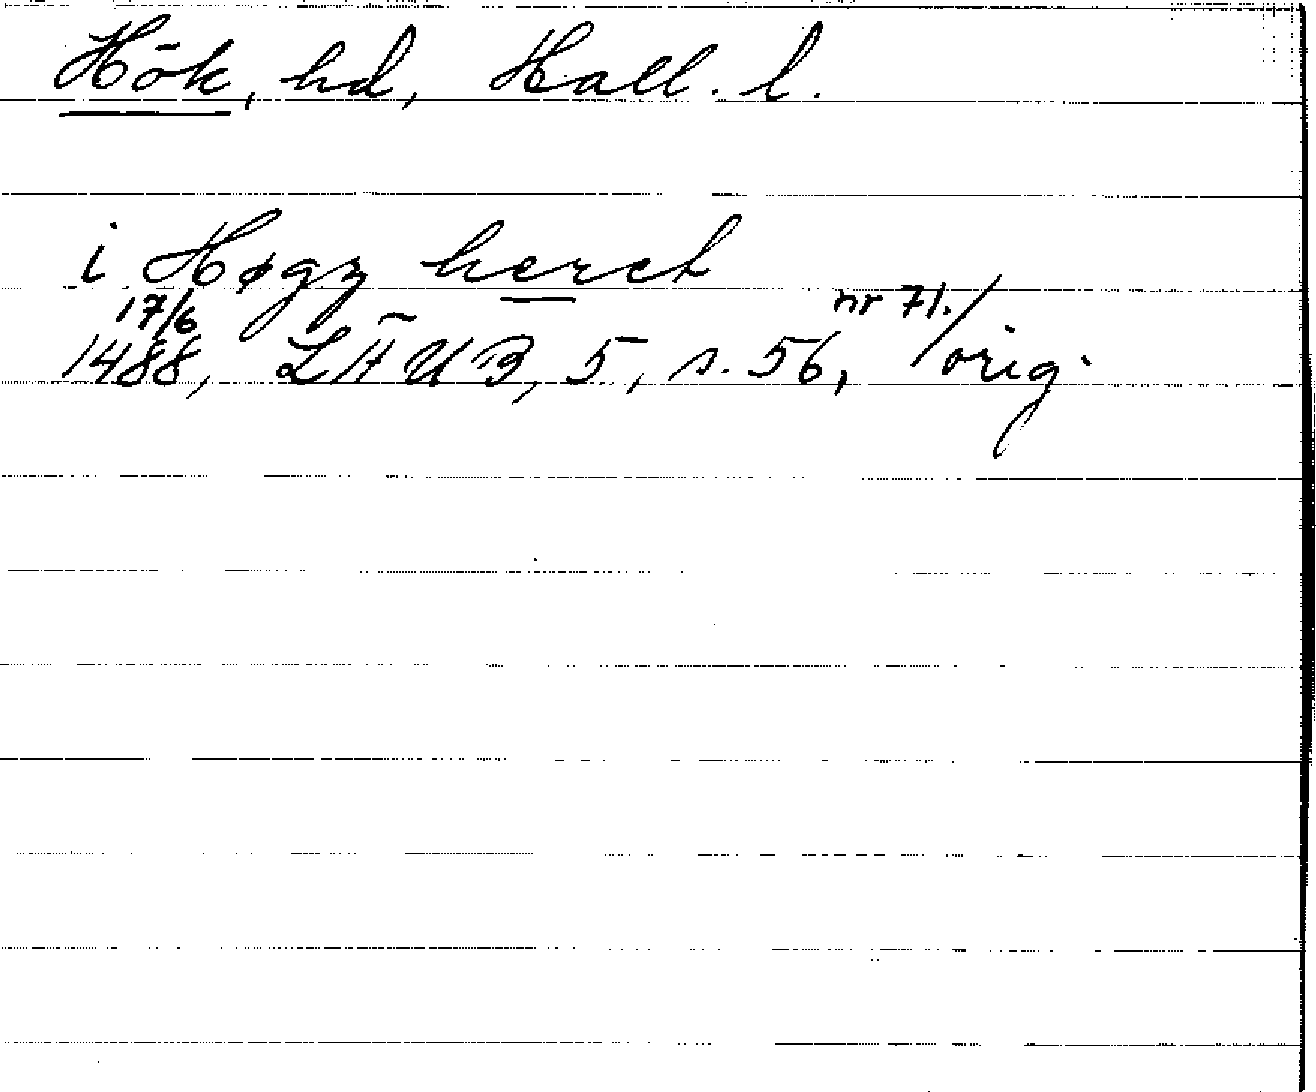 Hök, hd, Hall. l.
i Høgz heret
17/6 nr 71.
1488, LÄUB, 5, s. 56, / orig.